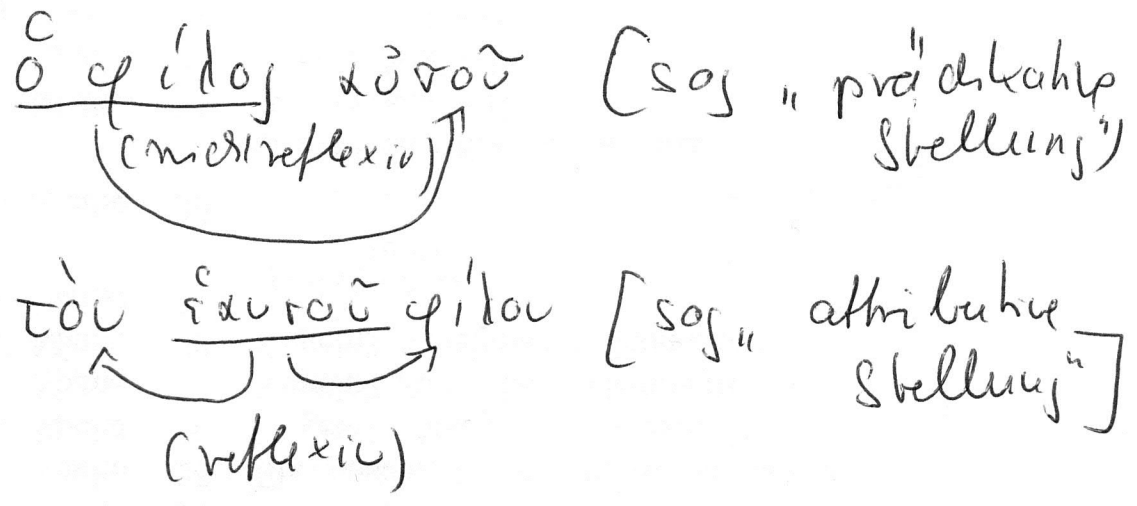 ὁ φίλος αὐτοῦ [sog „prädikative
(nicht reflexiv) Stellung")
τὸν ἑαυτοῦ φίλον [sog „attributive
Stellung"]
(reflexiv)